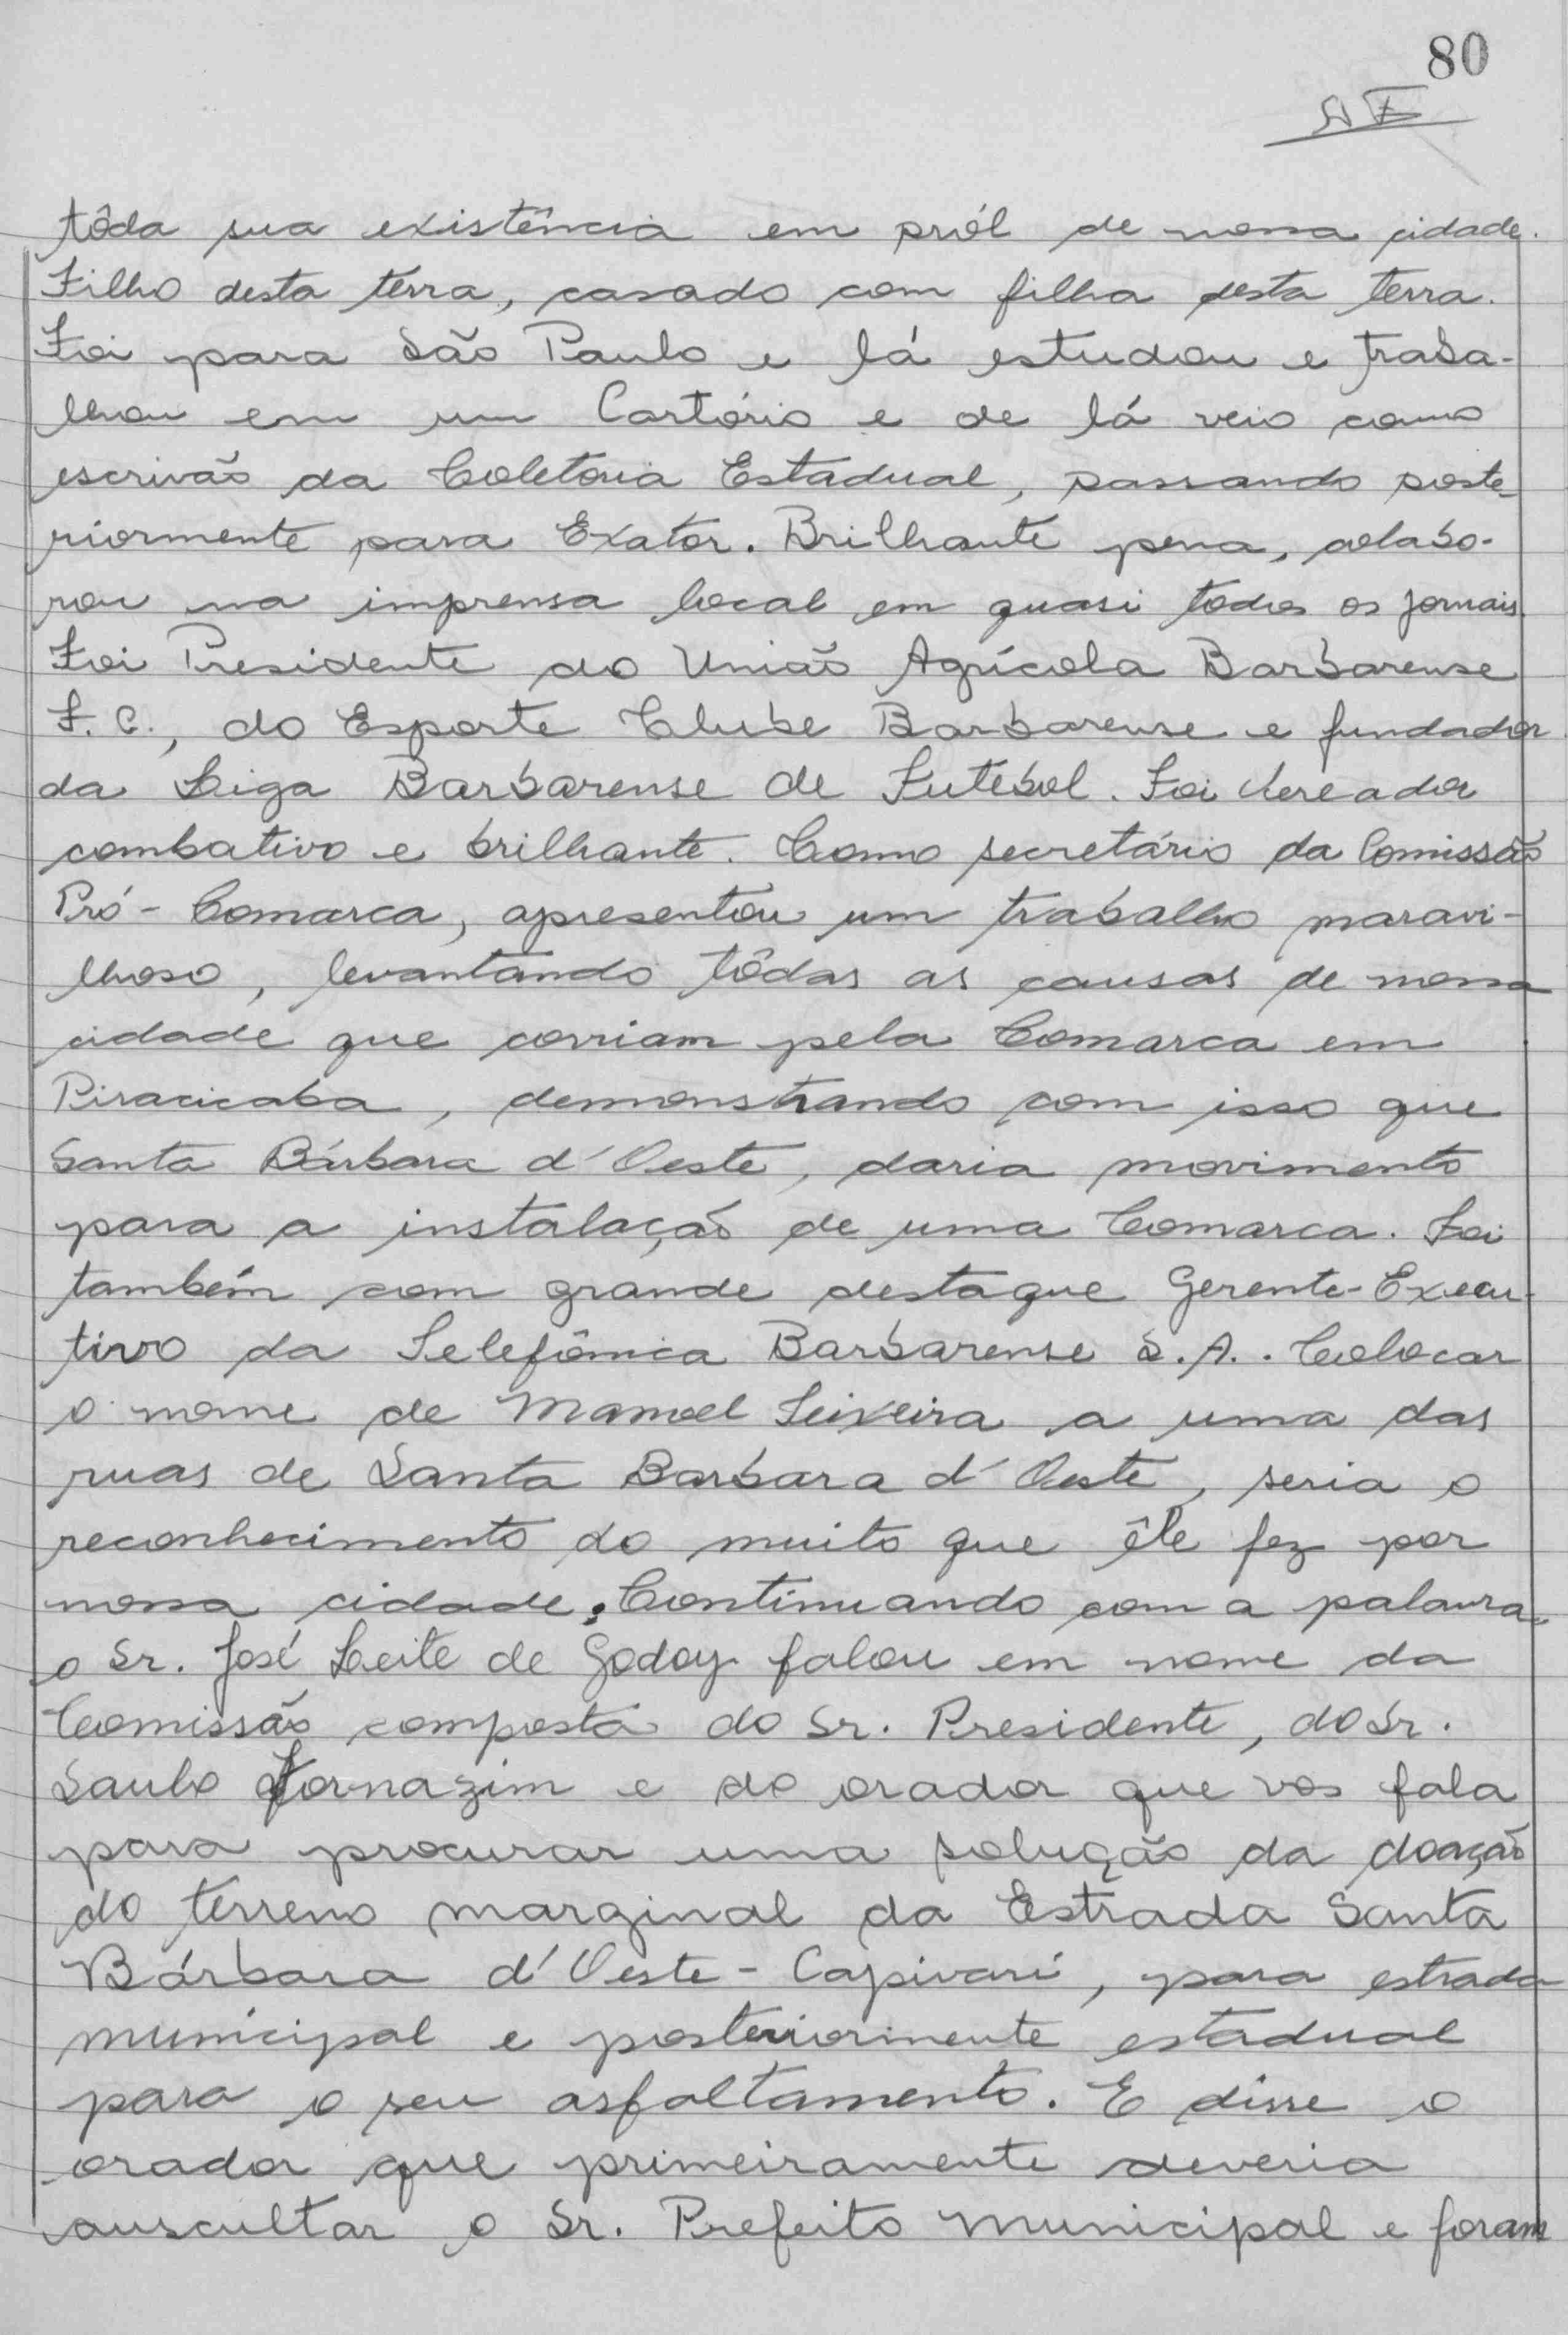 80
tôda sua existência em pról de nossa cidade.
Filho desta terra, casado com filha desta terra.
Foi para São Paulo e lá estudou e traba-
lhou em um Cartório e de lá veio como
escrivão da Coletoria Estadual, passando poste-
riormente para Exator. Brilhante pena, colabo-
rou na imprensa local em quasi todos os jornais.
Foi Presidente do União Agrícola Barbarense
F. C., do Esporte Clube Barbarense e fundador
da Liga Barbarense de Futebol. Foi Vereador
combativo e brilhante. Como secretário da Comissão
Pró-Comarca, apresentou um trabalho maravi-
lhoso, levantando tôdas as causas de nossa
cidade que corriam pela Comarca em
Piracicaba, demonstrando com isso que
Santa Bárbara d'Oeste, daria movimento
para a instalação de uma Comarca. Foi
também com grande destaque Gerente-Execu-
tivo da Telefônica Barbarense S.A.. Colocar
o nome de Manoel Teixeira a uma das
ruas de Santa Barbara d'Oeste, seria o
reconhecimento do muito que êle fez por
nossa cidade. Continuando com a palavra
o Sr. José Leite de Godoy falou em nome da
Comissão composta do Sr. Presidente, do Sr.
Saulo Fornazim e do orador que vos fala
para procurar uma solução da doação
do terreno marginal da Estrada Santa
Bárbara d'Oeste-Capivarí, para estrada
municipal e posteriormente estadual
para o seu asfaltamento. E disse o
orador que primeiramente deveria
auscultar o Sr. Prefeito Municipal e foram